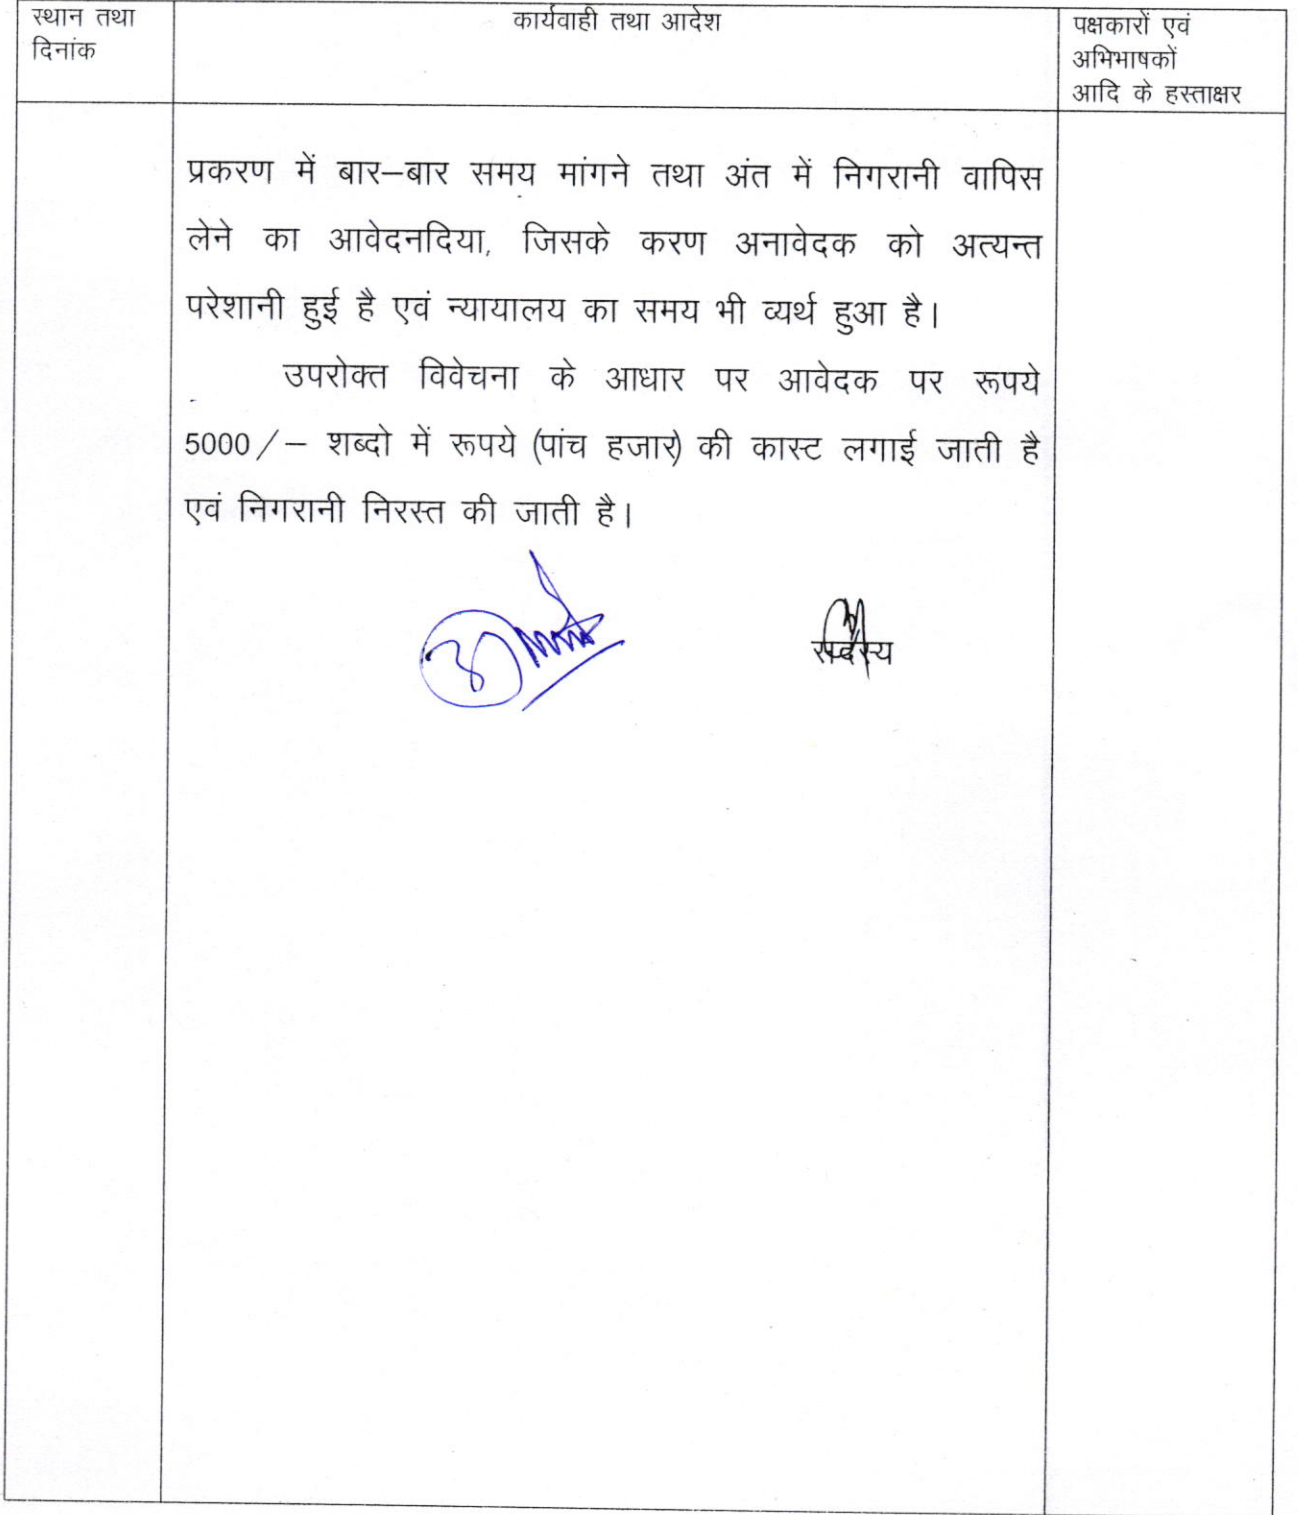 स्थान तथा
दिनांक
कार्यवाही तथा आदेश
पक्षकारों एवं
अभिभाषकों
आदि के हस्ताक्षर
प्रकरण में बार–बार समय मांगने तथा अंत में निगरानी वापिस
लेने का आवेदनदिया, जिसके करण अनावेदक को अत्यन्त
परेशानी हुई है एवं न्यायालय का समय भी व्यर्थ हुआ है।
उपरोक्त विवेचना के आधार पर आवेदक पर रूपये
5000/– शब्दो में रूपये (पांच हजार) की कास्ट लगाई जाती है
एवं निगरानी निरस्त की जाती है।
सदस्य